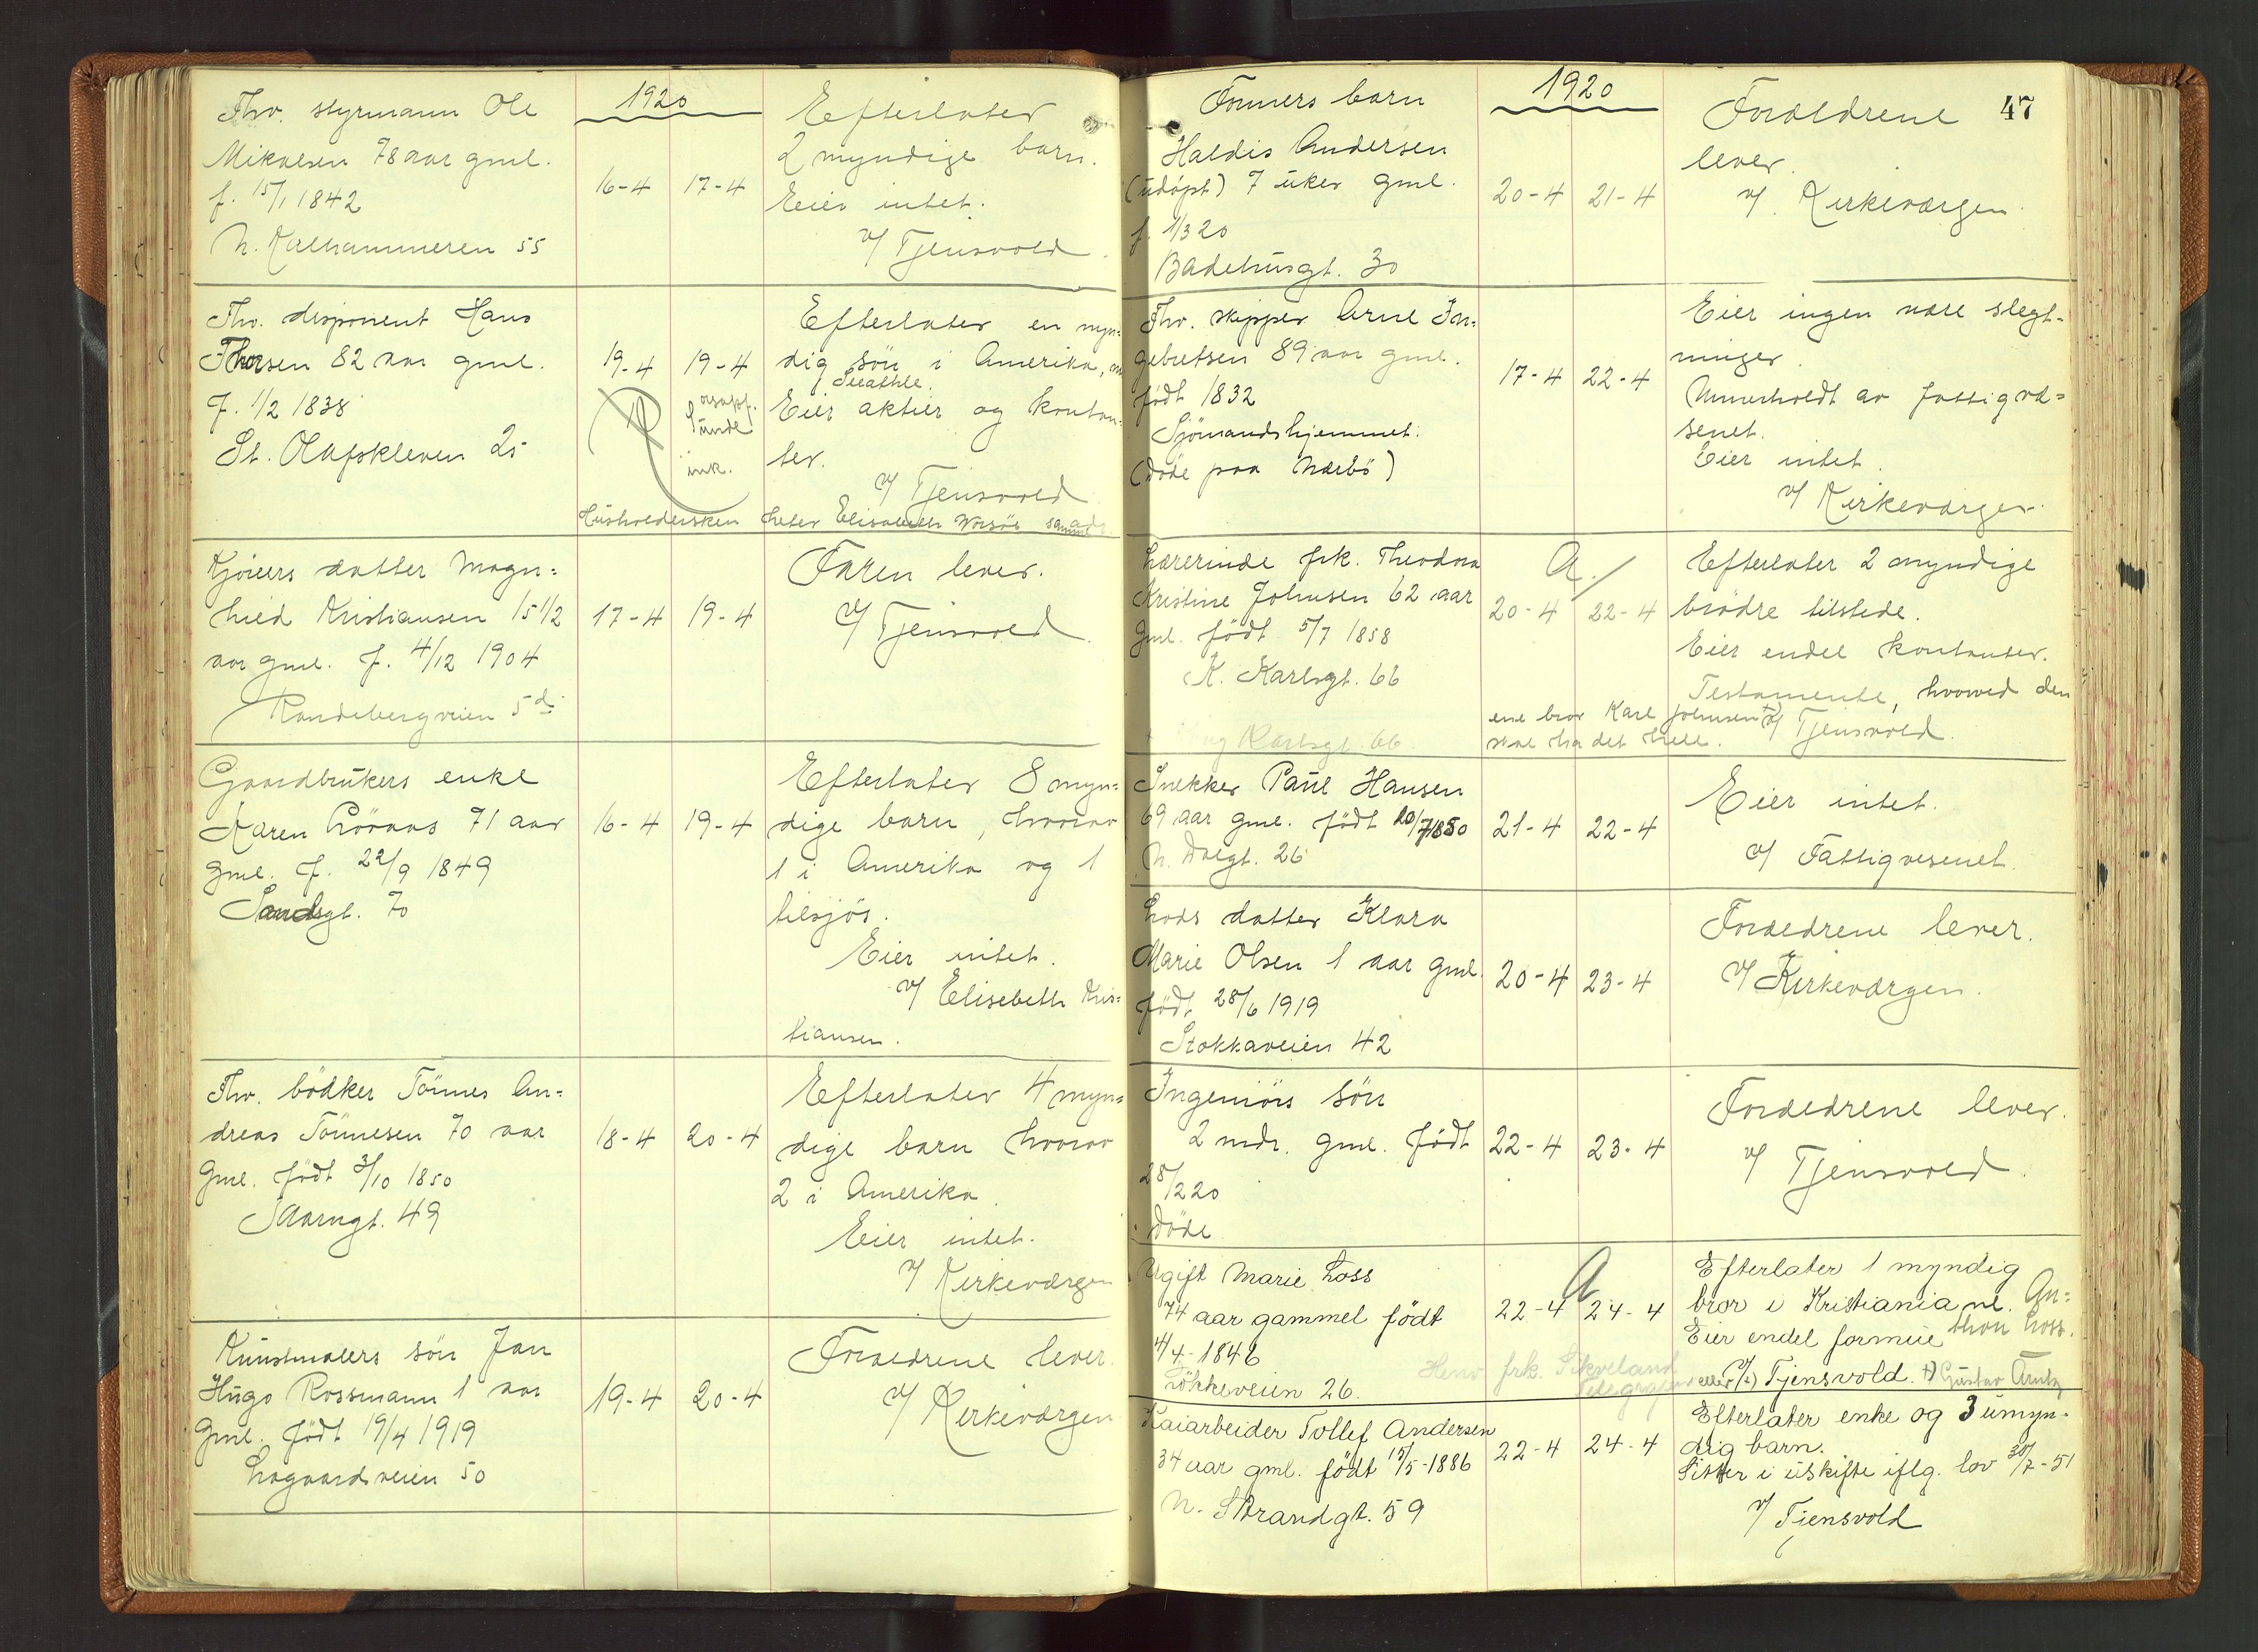 1920
Fhv. styrmann Ole
Mikalsen 78 aar gml.
f. 15/1 1842
N. Kalhammeren 55
16-4 17-4
Efterlater
2 myndige barn.
Eier intet.
v/ Tjensvold
Fhv. disponent Hans
Thorsen 82 aar gml.
f. 1/2 1838
St. Olafskleven 25
19-4 19-4
Efterlater en myn-
dig sön i Amerika,
Seeathle.
Eier aktier og kontan-
ter.
v/ Tjensvold
Husholdersken heter Elisabeth samme
Kjöiers datter Magn-
hild Kristiansen 15 1/2
aar gml. f. 4/12 1904
Randebergveien 5d
17-4 19-4
Faren lever.
v/ Tjensvold
Gaardbrukers enke
Karen 71 aar
gml. f. 22/9 1849
Sandsgt. 70
16-4 19-4
Efterlater 8 myn-
dige barn, hvorav
1 i Amerika og 1
tilsjös.
Eier intet.
v/ Elisebeth Kris-
tiansen.
Fhv. bödker Tönnes An-
dreas Tönnesen 70 aar
gml. födt 3/10 1850
49
18-4 20-4
Efterlater 4 myn-
dige barn hvorav
2 i Amerika
Eier intet.
v/ Kirkeværgen
Kunstmalers sön Jan
Hugo Rossmann 1 aar
gml. födt 19/4 1919
Lagaardsveien 50
19-4 20-4
Foreldrene lever.
v/ Kirkeværgen
1920
47
Formers barn
Haldis Andersen
(udöpt) 7 uker gml.
f. 1/3 20
Badehusgt. 30
20-4 21-4
Foreldrene
lever.
v/ Kirkeværgen
Fhv. skipper Arne In-
gebretsen 89 aar gml.
födt 1832
Sjömandshjemmet.
(Döde paa Nærbö)
17-4 22-4
Eier ingen nære slegt-
ninger.
Underholdt av fattigvæ-
senet.
Eier intet.
v/ Kirkeværgen
Lærerinde frk. Theodora
Kristine Johnsen 62 aar
gml. födt 5/7 1858
K. Karlsgt. 66
Karlsgt. 66
A./
20-4 22-4
Efterlater 2 myndige
brödre tilstede.
Eier endel kontanter.
Testamente, hvorved den
ene bror Karl Johnsen v/ Tjensvold.
skal ha det hele.
Snekker Paul Hansen
69 aar gml. födt 20/7 1850
N. Dalgt. 26
21-4 22-4
Eier intet.
v/ Fattigvesenet
Lods datter Klara
Marie Olsen 1 aar gml.
födt 28/6 1919
Stokkaveien 42
20-4 23-4
Foreldrene lever.
v/ Kirkeværgen.
Ingeniörs sön
2 mdr. gml. födt
28/2 20
Döde
22-4 23-4
Foreldrene lever.
v/ Tjensvold
Ugift Marie Loss
74 aar gammel födt
4/4-1846
Lökkeveien 26.
A
22-4 24-4
Efterlater 1 myndig
bror i Kristiania nl. An-
thon Loss.
Eier endel formue
Henv frk. Sikveland
v/ Tjensvold. Gustav
Kaiarbeider Tollef Andersen
34 aar gml. födt 15/5-1886
N. Strandgt. 59
22-4 24-4
Efterlater enke og 3 umyn-
dig barn.
Sitter i uskifte iflg. lov 30/7-51
v/ Tjensvold